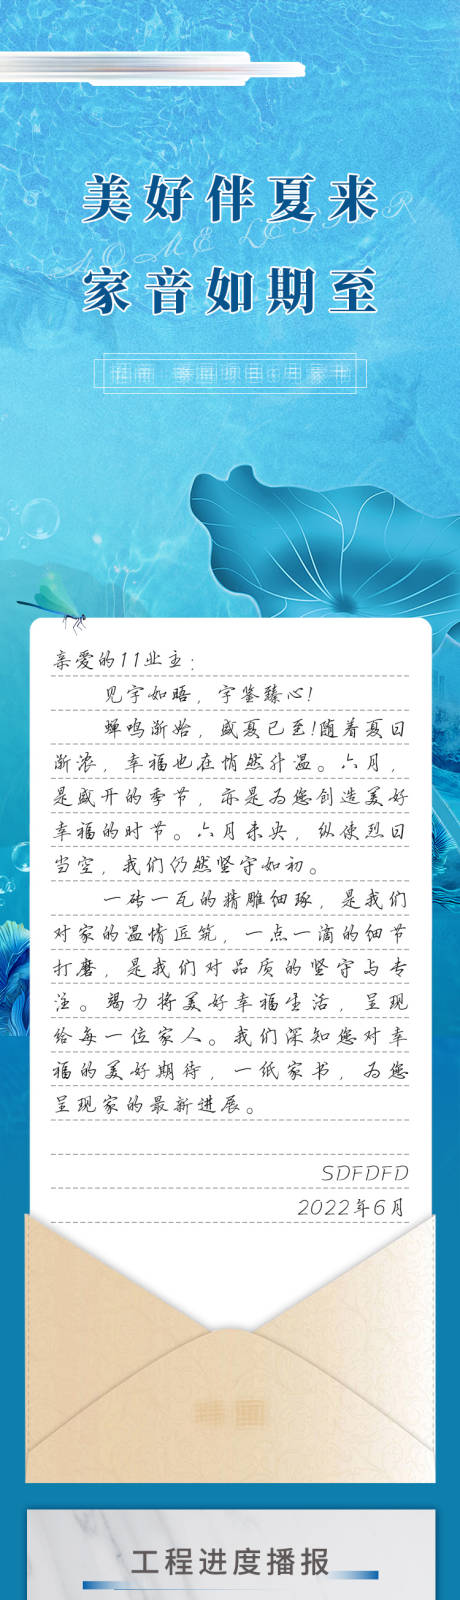 美好伴夏来
HOME LETTER
家音如期至
亲爱的11业主：
见字如晤，字鉴臻心!
蝉鸣渐始，盛夏已至!随着夏日
渐浓，幸福也在悄然升温。六月，
是盛开的季节，亦是为您创造美好
幸福的时节。六月未央，纵使烈日
当空，我们仍然坚守如初。
一砖一瓦的精雕细琢，是我们
对家的温情匠筑，一点一滴的细节
打磨，是我们对品质的坚守与专
注。竭力将美好幸福生活，呈现
给每一位家人。我们深知您对幸
福的美好期待，一纸家书，为您
呈现家的最新进展。
SDFDFD
2022年6月
工程进度播报